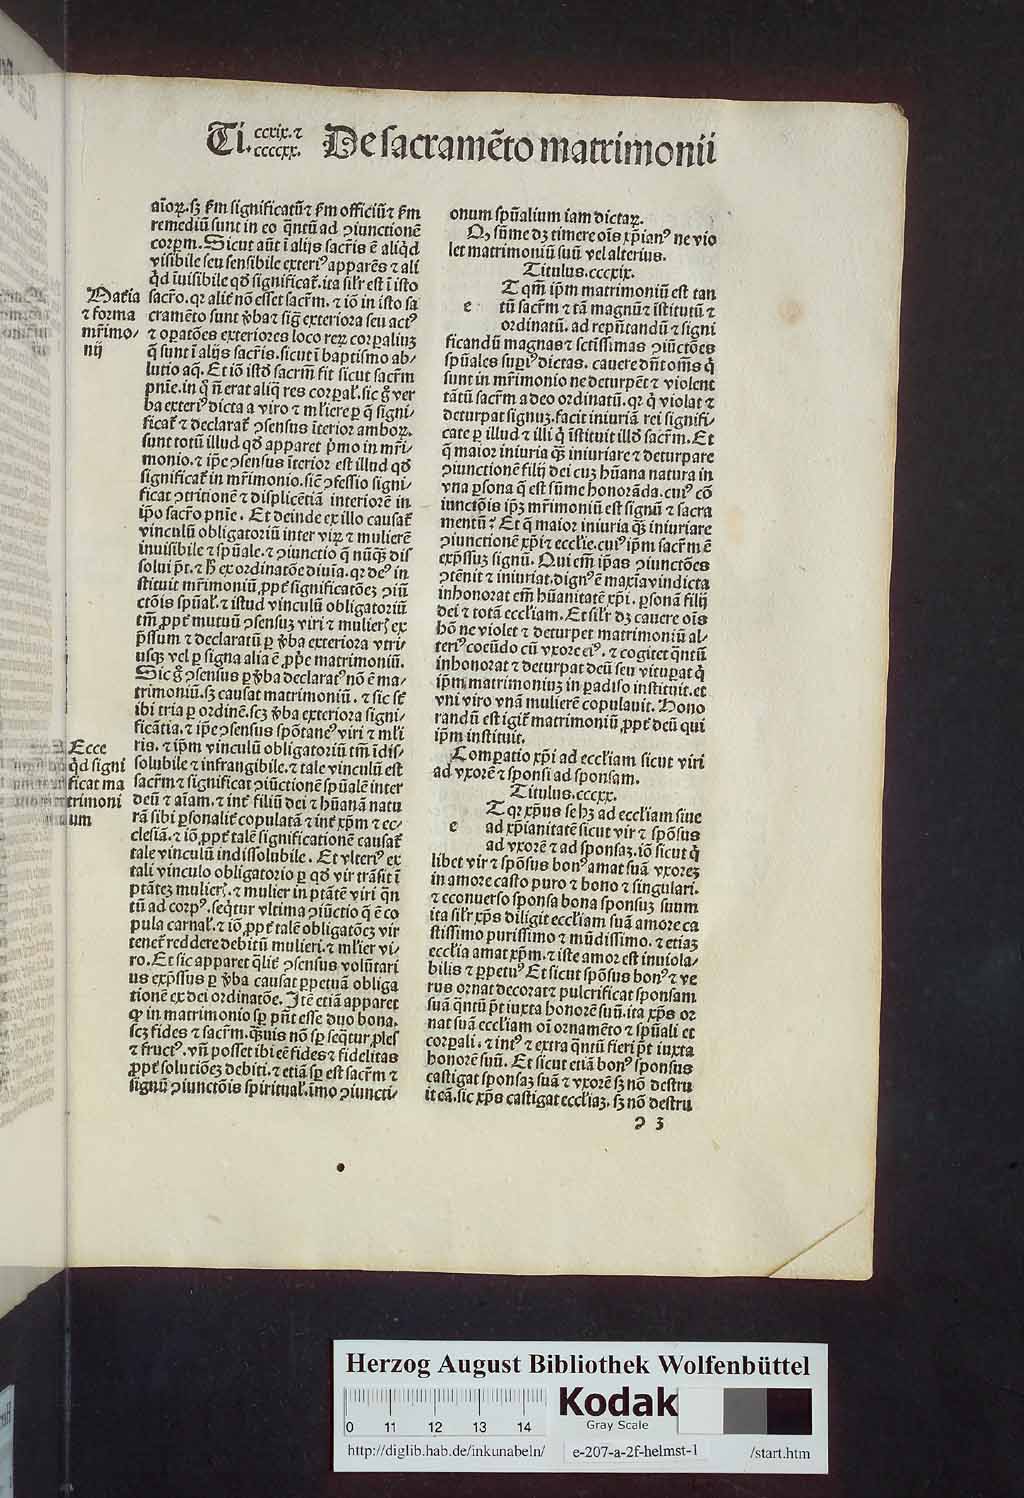 Ti. cccxix. ⁊ ccccxx. De sacramēto matrimonii
aīoꝝ. sꝫ ẜm significatū ⁊ ẜm officiū ⁊ ẜm
remediū sunt in eo q̄ntū ad ꝯiunctionē
corpm. Sicut aūt ī alijs sacr̄is ē aliqd̄
visibile seu sensibile exteriꝰ apparēs ⁊ ali
qd̄ īuisibile qd̄ significat̄. ita silr̄ est ī isto
sacr̄o. qꝛ alit̄ nō esset sacr̄m. ⁊ iō in isto sa
cramēto sunt v̄ba ⁊ siḡ exteriora seu actꝰ
⁊ oꝑatōes exteriores loco reꝝ corꝑaliuꝫ
q̄ sunt ī alijs sacr̄is. sicut ī baptismo ab/
lutio aq̄. Et iō istd̄ sacrm̄ fit sicut sacr̄m
pnīe. in q̄ n̄ erat aliq̄ res corꝑal̄. sic g̊ ver
ba exteriꝰ dicta a viro ⁊ ml̄iere ꝑ q̄ signi/
ficat̄ ⁊ declarat̄ ꝯsensus īterior amboꝝ.
sunt totū illud qd̄ apparet pͥmo in mr̄i/
monio. ⁊ ip̄e ꝯsensus īterior est illud qd̄
significat̄ in mr̄imonio. sic̄ ꝯfessio signi/
ficat ꝯtritionē ⁊ displicētiā interiorē in
ip̄o sacr̄o pnīe. Et deinde ex illo causat̄
vinculū obligatoriū inter viꝝ ⁊ mulierē
inuisibile ⁊ spūale. ⁊ ꝯiunctio q̄ nūqꝫ dis
solui p̄t. ⁊ h̄ ex ordinatōe diuīa. qꝛ deꝰ in
stituit mr̄imoniū ꝓpt̄ significatōeꝫ ꝯiū
ctōis spūal̄. ⁊ istud vinculū obligatoriū
tm̄ ꝓpt̄ mutuū ꝯsensuꝫ viri ⁊ mulierꝭ ex
p̄ssum ⁊ declaratū ꝑ v̄ba exteriora vtri/
usqꝫ vel ꝑ signa alia ē ꝓp̄e matrimoniū.
Sic g̊ ꝯsensus ꝑ v̄ba declaratꝰ nō ē ma/
trimoniū. sꝫ causat matrimoniū. ⁊ sic st̄
ibi tria ꝑ ordinē. scꝫ v̄ba exteriora signi/
ficātia. ⁊ ip̄e ꝯsensus spōtaneꝰ viri ⁊ ml̄i
ris. ⁊ ip̄m vinculū obligatoriū tm̄ īdis/
solubile ⁊ infrangibile. ⁊ tale vinculū est
sacr̄m ⁊ significat ꝯiūctionē spūalē inter
deū ⁊ aīam. ⁊ int̄ filiū dei ⁊ hūanā natu
rā sibi ꝑsonalit̄ copulatā ⁊ int̄ xp̄m ⁊ ec/
clesiā. ⁊ iō ꝓpt̄ talē significationē causat̄
tale vinculū indissolubile. Et vlteriꝰ ex
tali vinculo obligatorio ꝑ qd̄ vir trāsit ī
ptātez mulierꝭ. ⁊ mulier in ptātē viri q̄n
tū ad corpꝰ. seq̄tur vltima ꝯiūctio q̄ ē co
pula carnal̄. ⁊ iō ꝓpt̄ talē obligatōeꝫ vir
tenet̄ reddere debitū mulieri. ⁊ ml̄ier vi/
ro. Et sic apparet q̄lit̄ ꝯsensus volūtari
us exp̄ssus ꝑ v̄ba causat ꝑpetuā obliga
tionē ex dei ordinatōe. Itē etiā apparet
ꝙ in matrimonio sꝑ pn̄t esse duo bona.
scꝫ fides ⁊ sacr̄m. q̄uis nō sꝑ seq̄tur ꝓles
⁊ fructꝰ. vn̄ posset ibi eē fides ⁊ fidelitas
ꝓpt̄ solutiōeꝫ debiti. ⁊ etiā sꝑ est sacr̄m ⁊
signū ꝯiunctōis spiritual̄. īmo ꝯiuncti/
Mat̄ia
⁊ forma
mr̄imo/
nij
Ecce
qd̄ signi
ficat ma
trimoni
um
onum spūalium iam dictaꝝ.
Q, sūme dꝫ timere oīs xp̄ianꝰ ne vio
let matrimoniū suū vel alterius.
Titulus. cccxix.
e
T qm̄ ip̄m matrimoniū est tan
tū sacr̄m ⁊ tā magnū ⁊ īstitutū ⁊
ordinatū. ad rep̄ntandū ⁊ signi
ficandū magnas ⁊ sctīssimas ꝯiūctōes
spūales supͥꝰ dictas. cauere dn̄t om̄s q̇
sunt in mr̄imonio ne deturpēt ⁊ violent
tātū sacr̄m a deo ordinatū. qꝛ q̇ violat ⁊
deturpat signuꝫ. facit iniuriā rei signifi/
cate ꝑ illud ⁊ illi q̇ īstituit illd̄ sacr̄m. Et
q̄ maior iniuria qꝫ iniuriare ⁊ deturpare
ꝯiunctionē filij dei cuꝫ hūana natura in
vna ꝑsona q̄ est sūme honorāda. cuiꝰ cō
iunctōis ip̄ꝫ mr̄imoniū est signū ⁊ sacra
mentū? Et q̄ maior iniuria qꝫ iniuriare
ꝯiunctionē xp̄i ⁊ ecclīe. cuiꝰ ip̄m sacr̄m ē
exp̄ssuꝫ signū. Qui em̄ ip̄as ꝯiunctōes
ꝯtēnit ⁊ iniuriat. dignꝰ ē maxīa vindicta
inhonorat em̄ hūanitatē xp̄i. ꝑsonā filij
dei ⁊ totā eccl̄iam. Et silr̄ dꝫ cauere oīs
hō ne violet ⁊ deturpet matrimoniū al/
teriꝰ coeūdo cū vxore eiꝰ. ⁊ cogitet q̄ntū
inhonorat ⁊ deturpat deū seu vituꝑat q̇
ip̄m matrimoniuꝫ in ꝑadiso instituit. et
vni viro vnā mulierē copulauit. Hono
randū est igit̄ matrimoniū ꝓpt̄ deū qui
ip̄m instituit.
Comꝑatio xp̄i ad eccl̄iam sicut viri
ad vxorē ⁊ sponsi ad sponsam.
Titulus. cccxx.
e
T qꝛ xp̄us se hꝫ ad eccl̄iam siue
ad xp̄ianitatē sicut vir ⁊ spōsus
ad vxorē ⁊ ad sponsaꝫ. iō sicut q̇
libet vir ⁊ spōsus bonꝰ amat suā vxoreꝫ
in amore casto puro ⁊ bono ⁊ singulari.
⁊ econuerso sponsa bona sponsuꝫ suum
ita silr̄ xp̄s diligit eccl̄iam suā amore ca
stissimo purissimo ⁊ mūdissimo. ⁊ etiaꝫ
eccl̄ia amat xp̄m. ⁊ iste amor est inuiola/
bilis ⁊ ꝑpetuꝰ Et sicut spōsus bonꝰ ⁊ ve
rus ornat decorat ⁊ pulcrificat sponsam
suā q̄ntū p̄t iuxta honorē suū. ita xp̄s or
nat suā eccl̄iam oī ornamēto ⁊ spūali et
corꝑali. ⁊ intꝰ ⁊ extra q̄ntū fieri p̄t iuxta
honorē suū. Et sicut etiā bonꝰ sponsus
castigat sponsaꝫ suā ⁊ vxorē sꝫ nō destru
it eā. sic xp̄s castigat eccl̄iaꝫ. sꝫ nō destru
ꝯ 3
Herzog August Bibliothek Wolfenbüttel
Kodak
Gray Scale
0 11 12 13 14
http://diglib.hab.de/inkunabeln/ e-207-a-2f-helmst-1 /start.htm